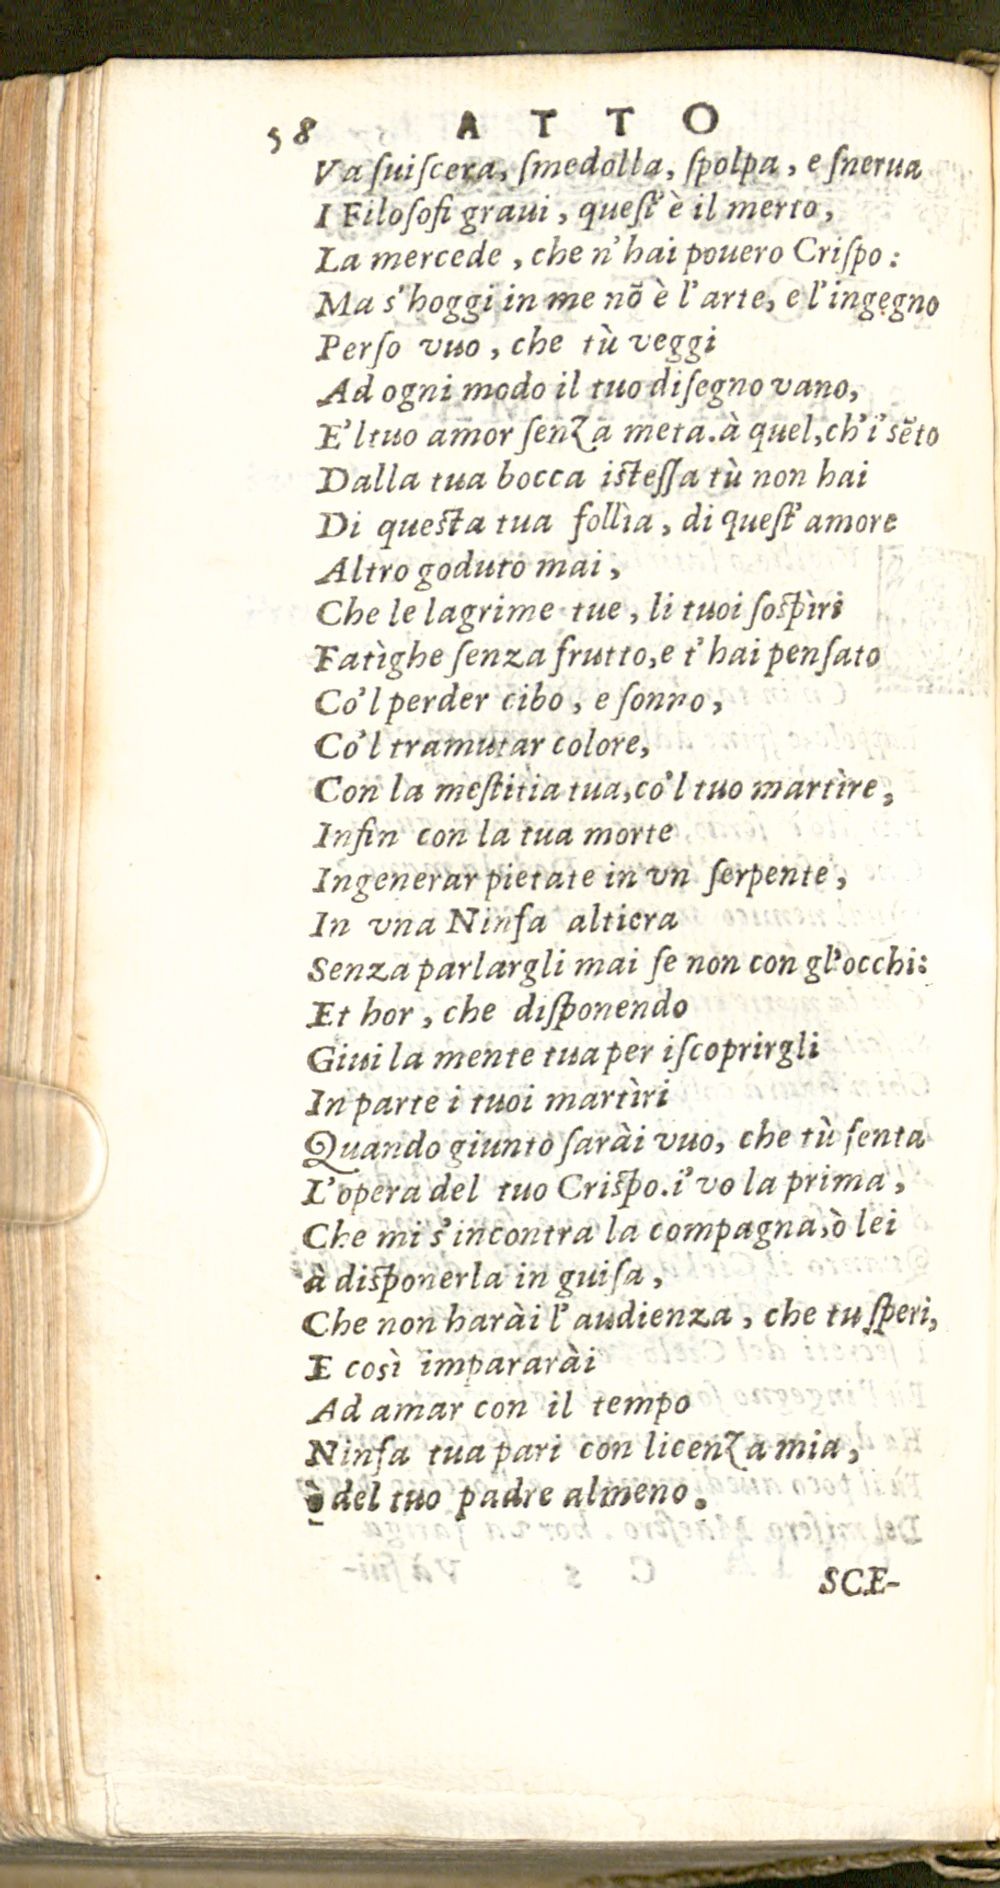 58 ATTO
Va ſuiſcera, ſmedolla, ſpolpa, e ſnerua
I Filoſofi graui, queſt'è il merto,
La mercede, che n'hai pouero Criſpo:
Ma s'hoggi in me nõ è l'arte, e l'ingegno
Perſo vuo, che tù veggi
Ad ogni modo il tuo diſegno vano,
E'l tuo amor ſenza meta. à quel, ch'i' sẽto
Dalla tua bocca isteſſa tù non hai
Di questa tua follìa, di queſt'amore
Altro goduto mai,
Che le lagrime tue, li tuoi ſospìri
Fatìghe ſenza frutto, e t'hai penſato
Co'l perder cibo, e ſonno,
Co'l tramutar colore,
Con la meſtitia tua, co'l tuo martìre,
Infin con la tua morte
Ingenerar pietate in vn ſerpente,
In vna Ninfa altiera
Senza parlargli mai ſe non con gl'occhi:
Et hor, che diſponendo
Giui la mente tua per iſcoprirgli
In parte i tuoi martìri
Quando giunto ſarài vuo, che tù ſenta
L'opera del tuo Crispo. i' vo la prima,
Che mi s'incontra la compagna, ò lei
à disponerla in guiſa,
Che non harài l'audienza, che tu ſperi,
E così impararài
Ad amar con il tempo
Ninfa tua pari con licenza mia,
ò del tuo padre almeno.
SCE-